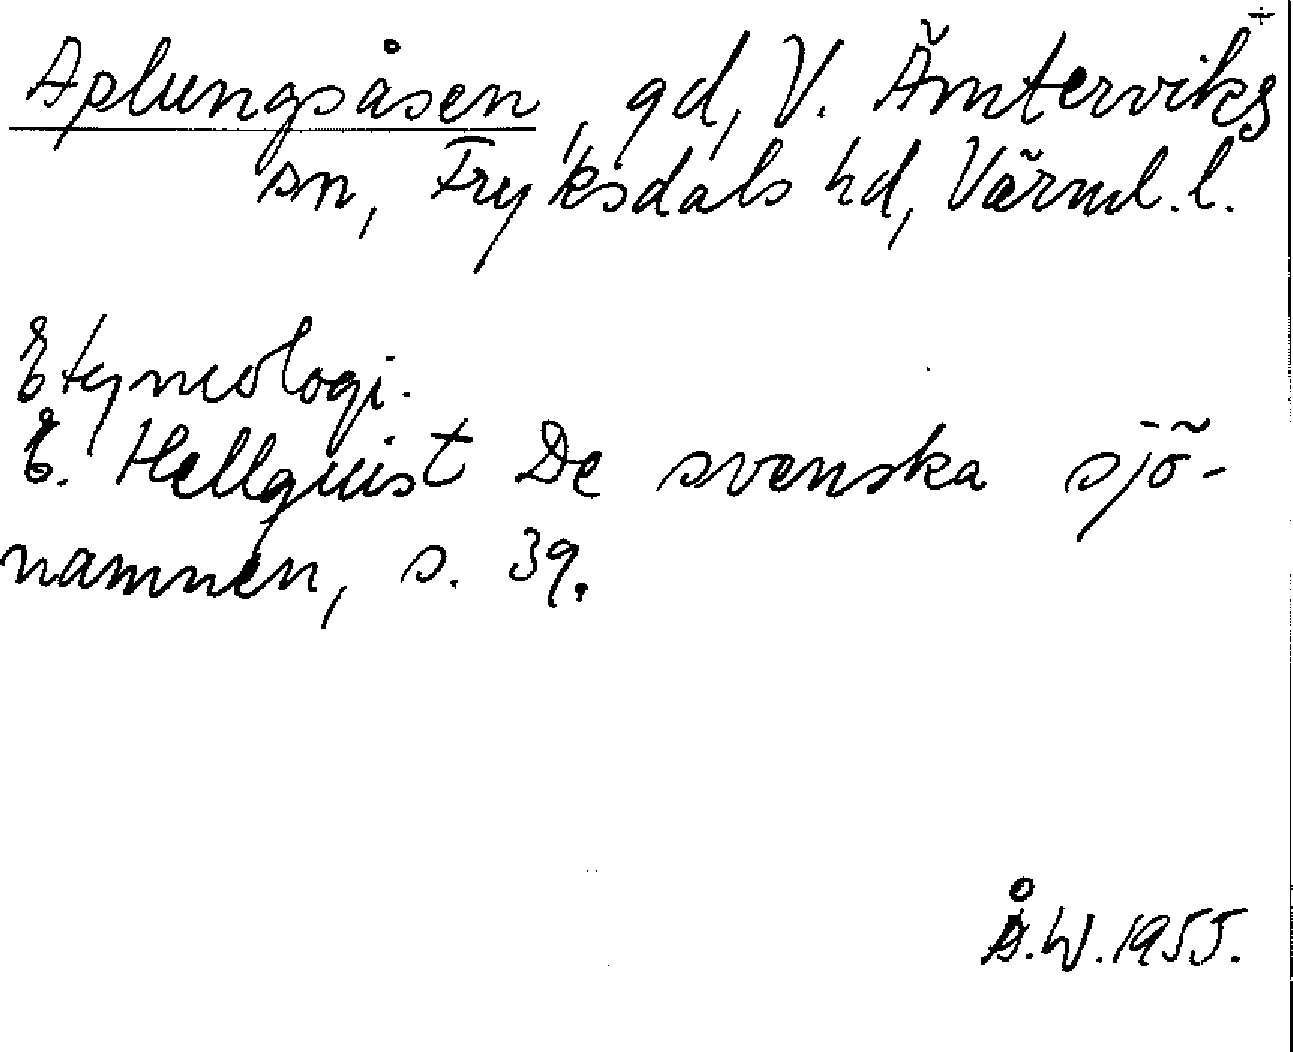 Aplungsåsen, gd, V. Ämterviks
sn, Fryksdals hd, Värml. l.
Etymologi.
E. Hellquist De svenska sjö-
namnen, s. 39.
Å.W. 1955.